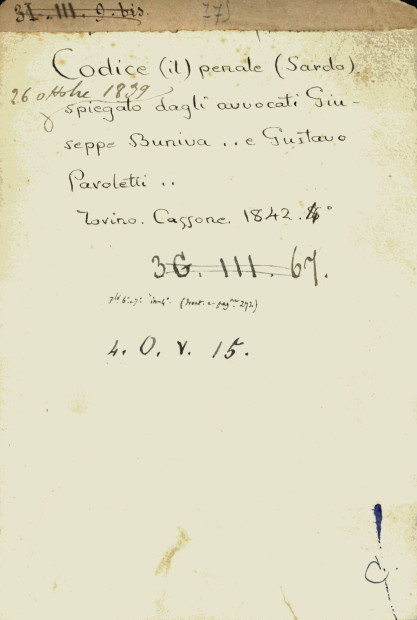 31. III. 9. bis
275
Codice (il) penale (Sardo)
26 ottobre 1839
spiegato dagli avvocati Giu-
seppe Buniva .. e Gustavo
Paroletti ..
Torino. Cassone. 1842.
36. III. 67.
4. O. V. 15.